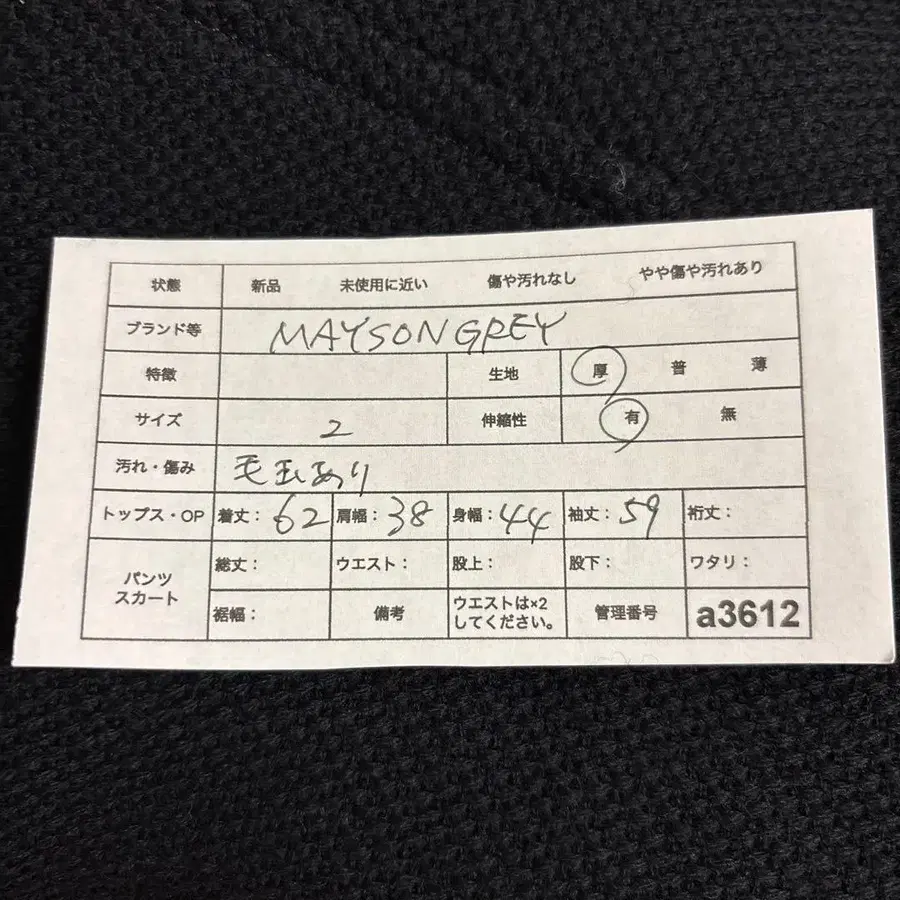 状態 新品 未使用に近い 傷や汚れなし やや傷や汚れあり
ブランド等 MAYSON GREY
特徴 生地 厚 普 薄
サイズ 2 伸縮性 有 無
汚れ・傷み 毛玉あり
トップス・OP 着丈：62 肩幅：38 身幅：44 袖丈：59 裄丈：
パンツ
スカート
総丈： ウエスト： 股上： 股下： ワタリ：
裾幅： 備考 ウエストは×2
してください。
管理番号 a3612